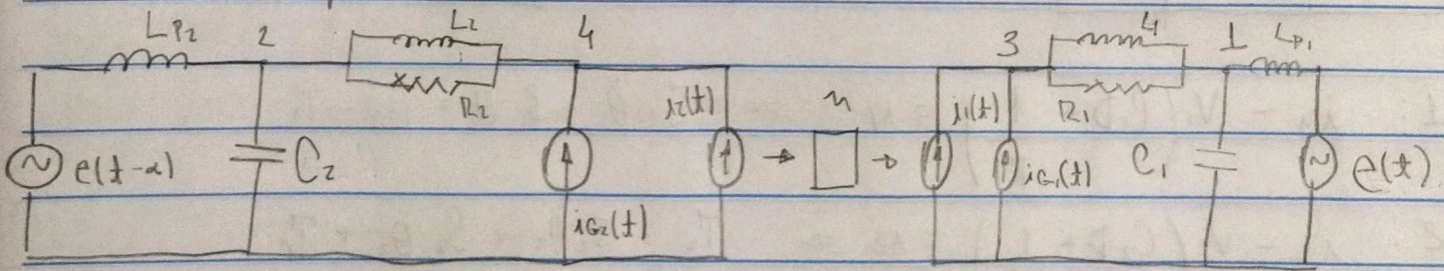 Lp2 2 L2 4 3 L1 1 Lp1
R2 i2(t) n i1(t) R1
e(t-α) C2 iG1(t) C1 e(t)
iG2(t)